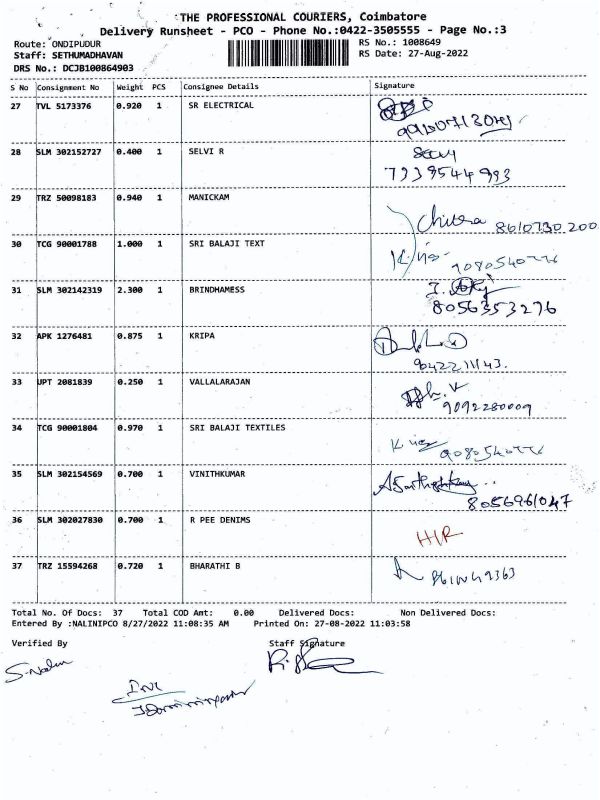 THE PROFESSIONAL COURIERS, Coimbatore
Delivery Runsheet - PCO - Phone No.:0422-3505555 - Page No.:3
Route: ONDIPUDUR
RS No.: 1008649
Staff: SETHUMADHAVAN
RS Date: 27-Aug-2022
DRS No.: DCJB100864903
S No Consignment No Weight PCS Consignee Details Signature
27 TVL 5173376 0.920 1 SR ELECTRICAL
28 SLM 302152727 0.400 1 SELVI R
7339544993
29 TRZ 50098183 0.940 1 MANICKAM
Chitra 8610730200
30 TCG 90001788 1.000 1 SRI BALAJI TEXT
31 SLM 302142319 2.300 1 BRINDHAMESS
8056353276
32 APK 1276481 0.875 1 KRIPA
33 UPT 2081839 0.250 1 VALLALARAJAN
9092280009
34 TCG 90001804 0.970 1 SRI BALAJI TEXTILES
35 SLM 302154569 0.700 1 VINITHKUMAR
8056961047
36 SLM 302027830 0.700 1 R PEE DENIMS
H/R
37 TRZ 15594268 0.720 1 BHARATHI B
Total No. Of Docs: 37 Total COD Amt: 0.00 Delivered Docs: Non Delivered Docs:
Entered By :NALINIPCO 8/27/2022 11:08:35 AM Printed On: 27-08-2022 11:03:58
Verified By Staff Signature